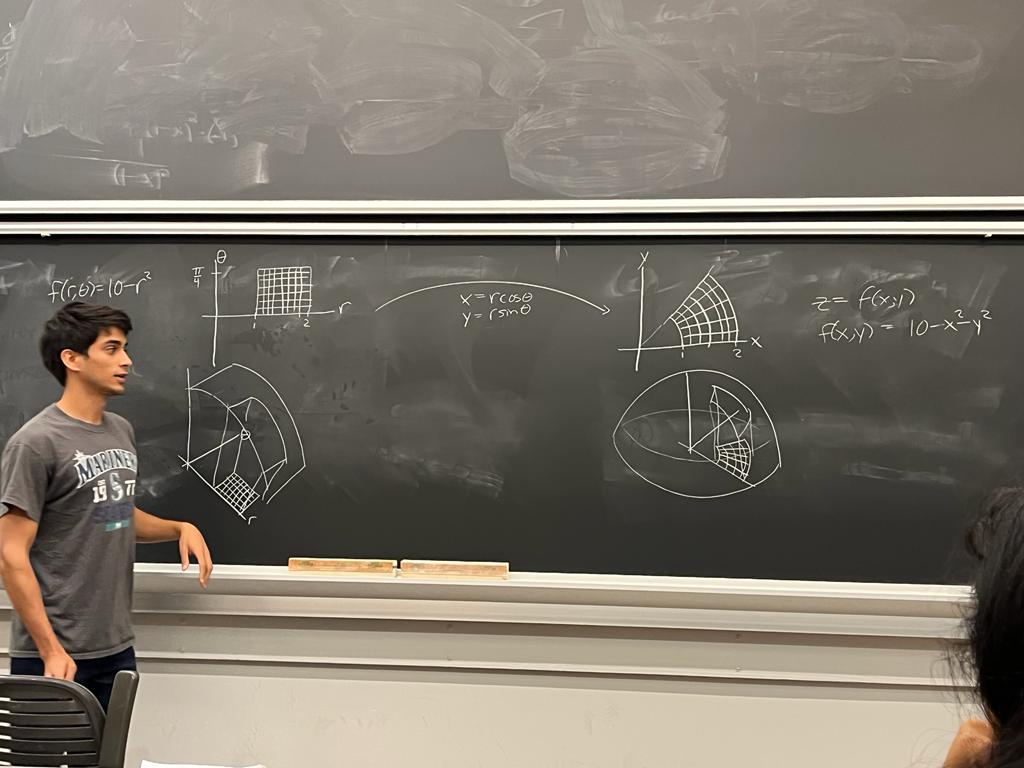 f(r,θ)=10-r²
θ
π/4
1
2
r
x=rcosθ
y=rsinθ
y
1
2
x
z= f(x,y)
f(x,y) = 10-x²-y²
θ
r
MARINERS
19 S 77